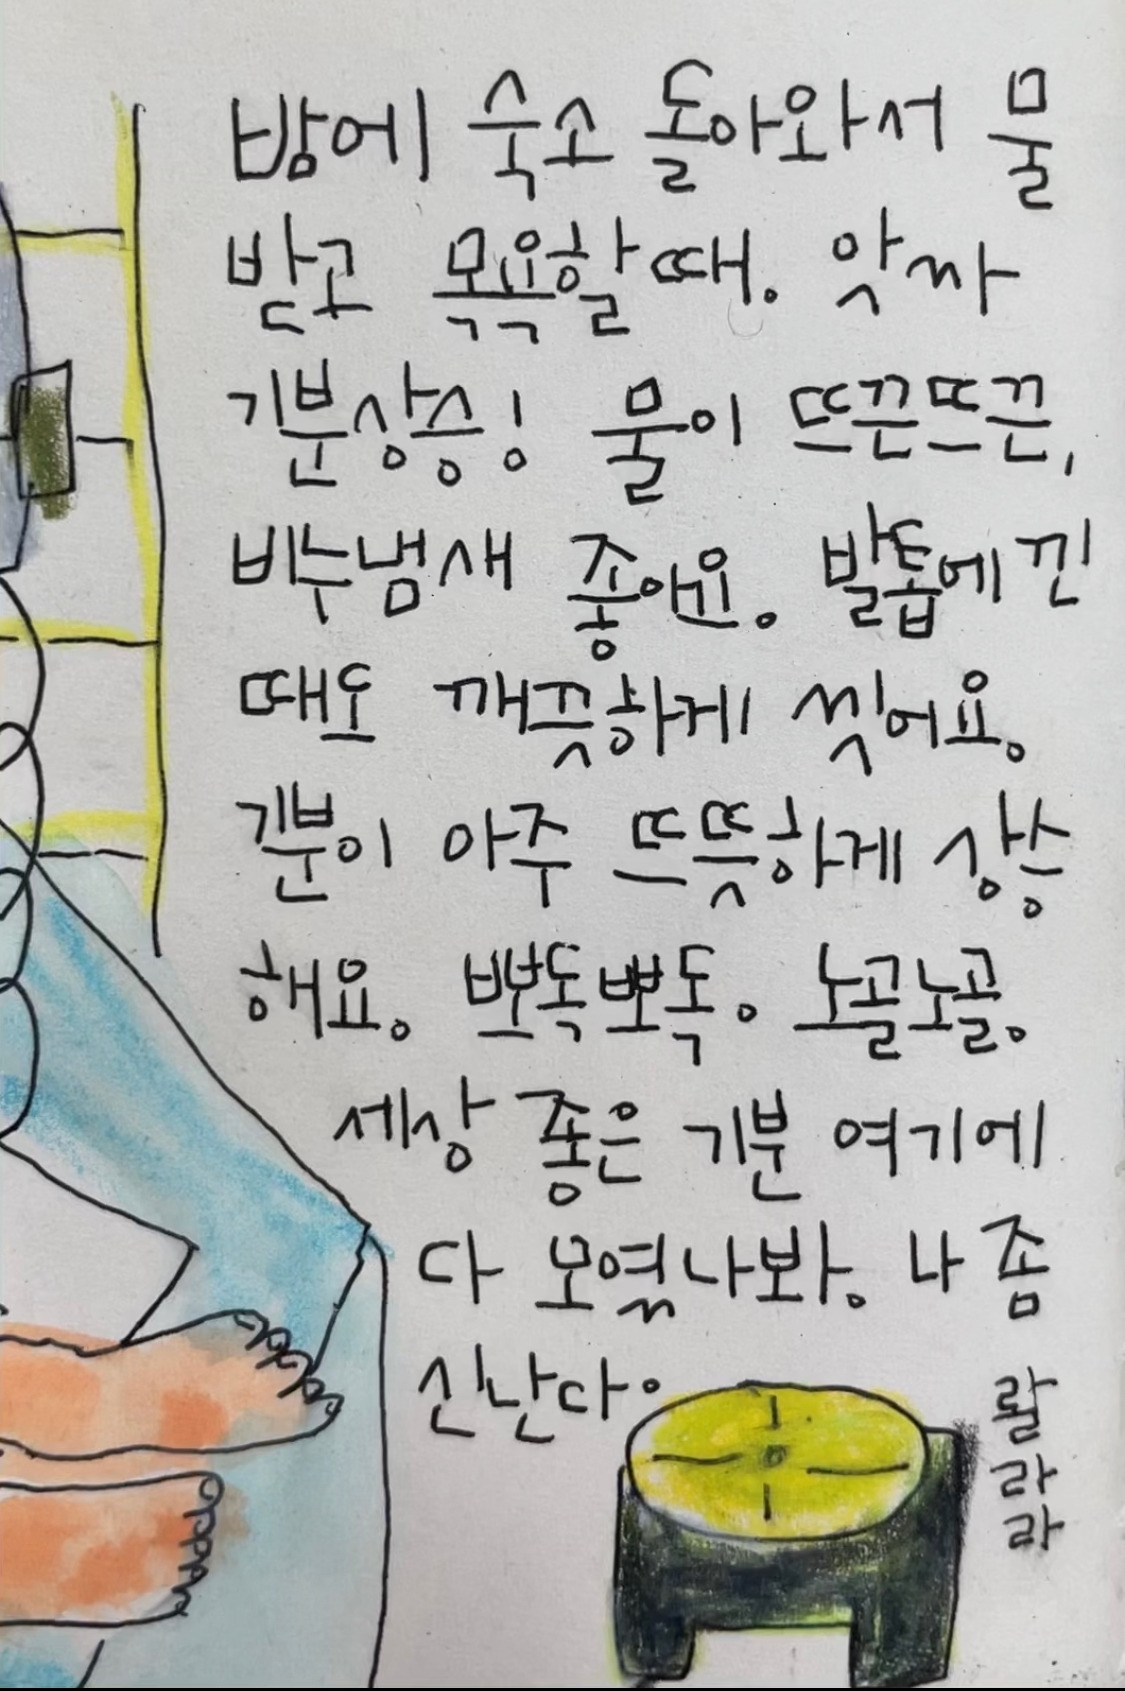 밤에 숙소 돌아와서 물
받고 목욕할때. 앗싸
기분상승! 물이 뜨끈뜨끈,
비누냄새 좋아요. 발톱에 낀
때도 깨끗하게 씻어요.
기분이 아주 뜨뜻하게 상승
해요. 뽀독뽀독. 노골노골.
세상 좋은 기분 여기에
다 모였나봐. 나 좀
신난다.
랄
라
라